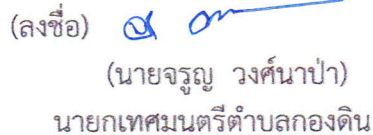 (ลงชื่อ)
(นายจรูญ วงศ์นาป่า)
นายกเทศมนตรีตำบลกองดิน